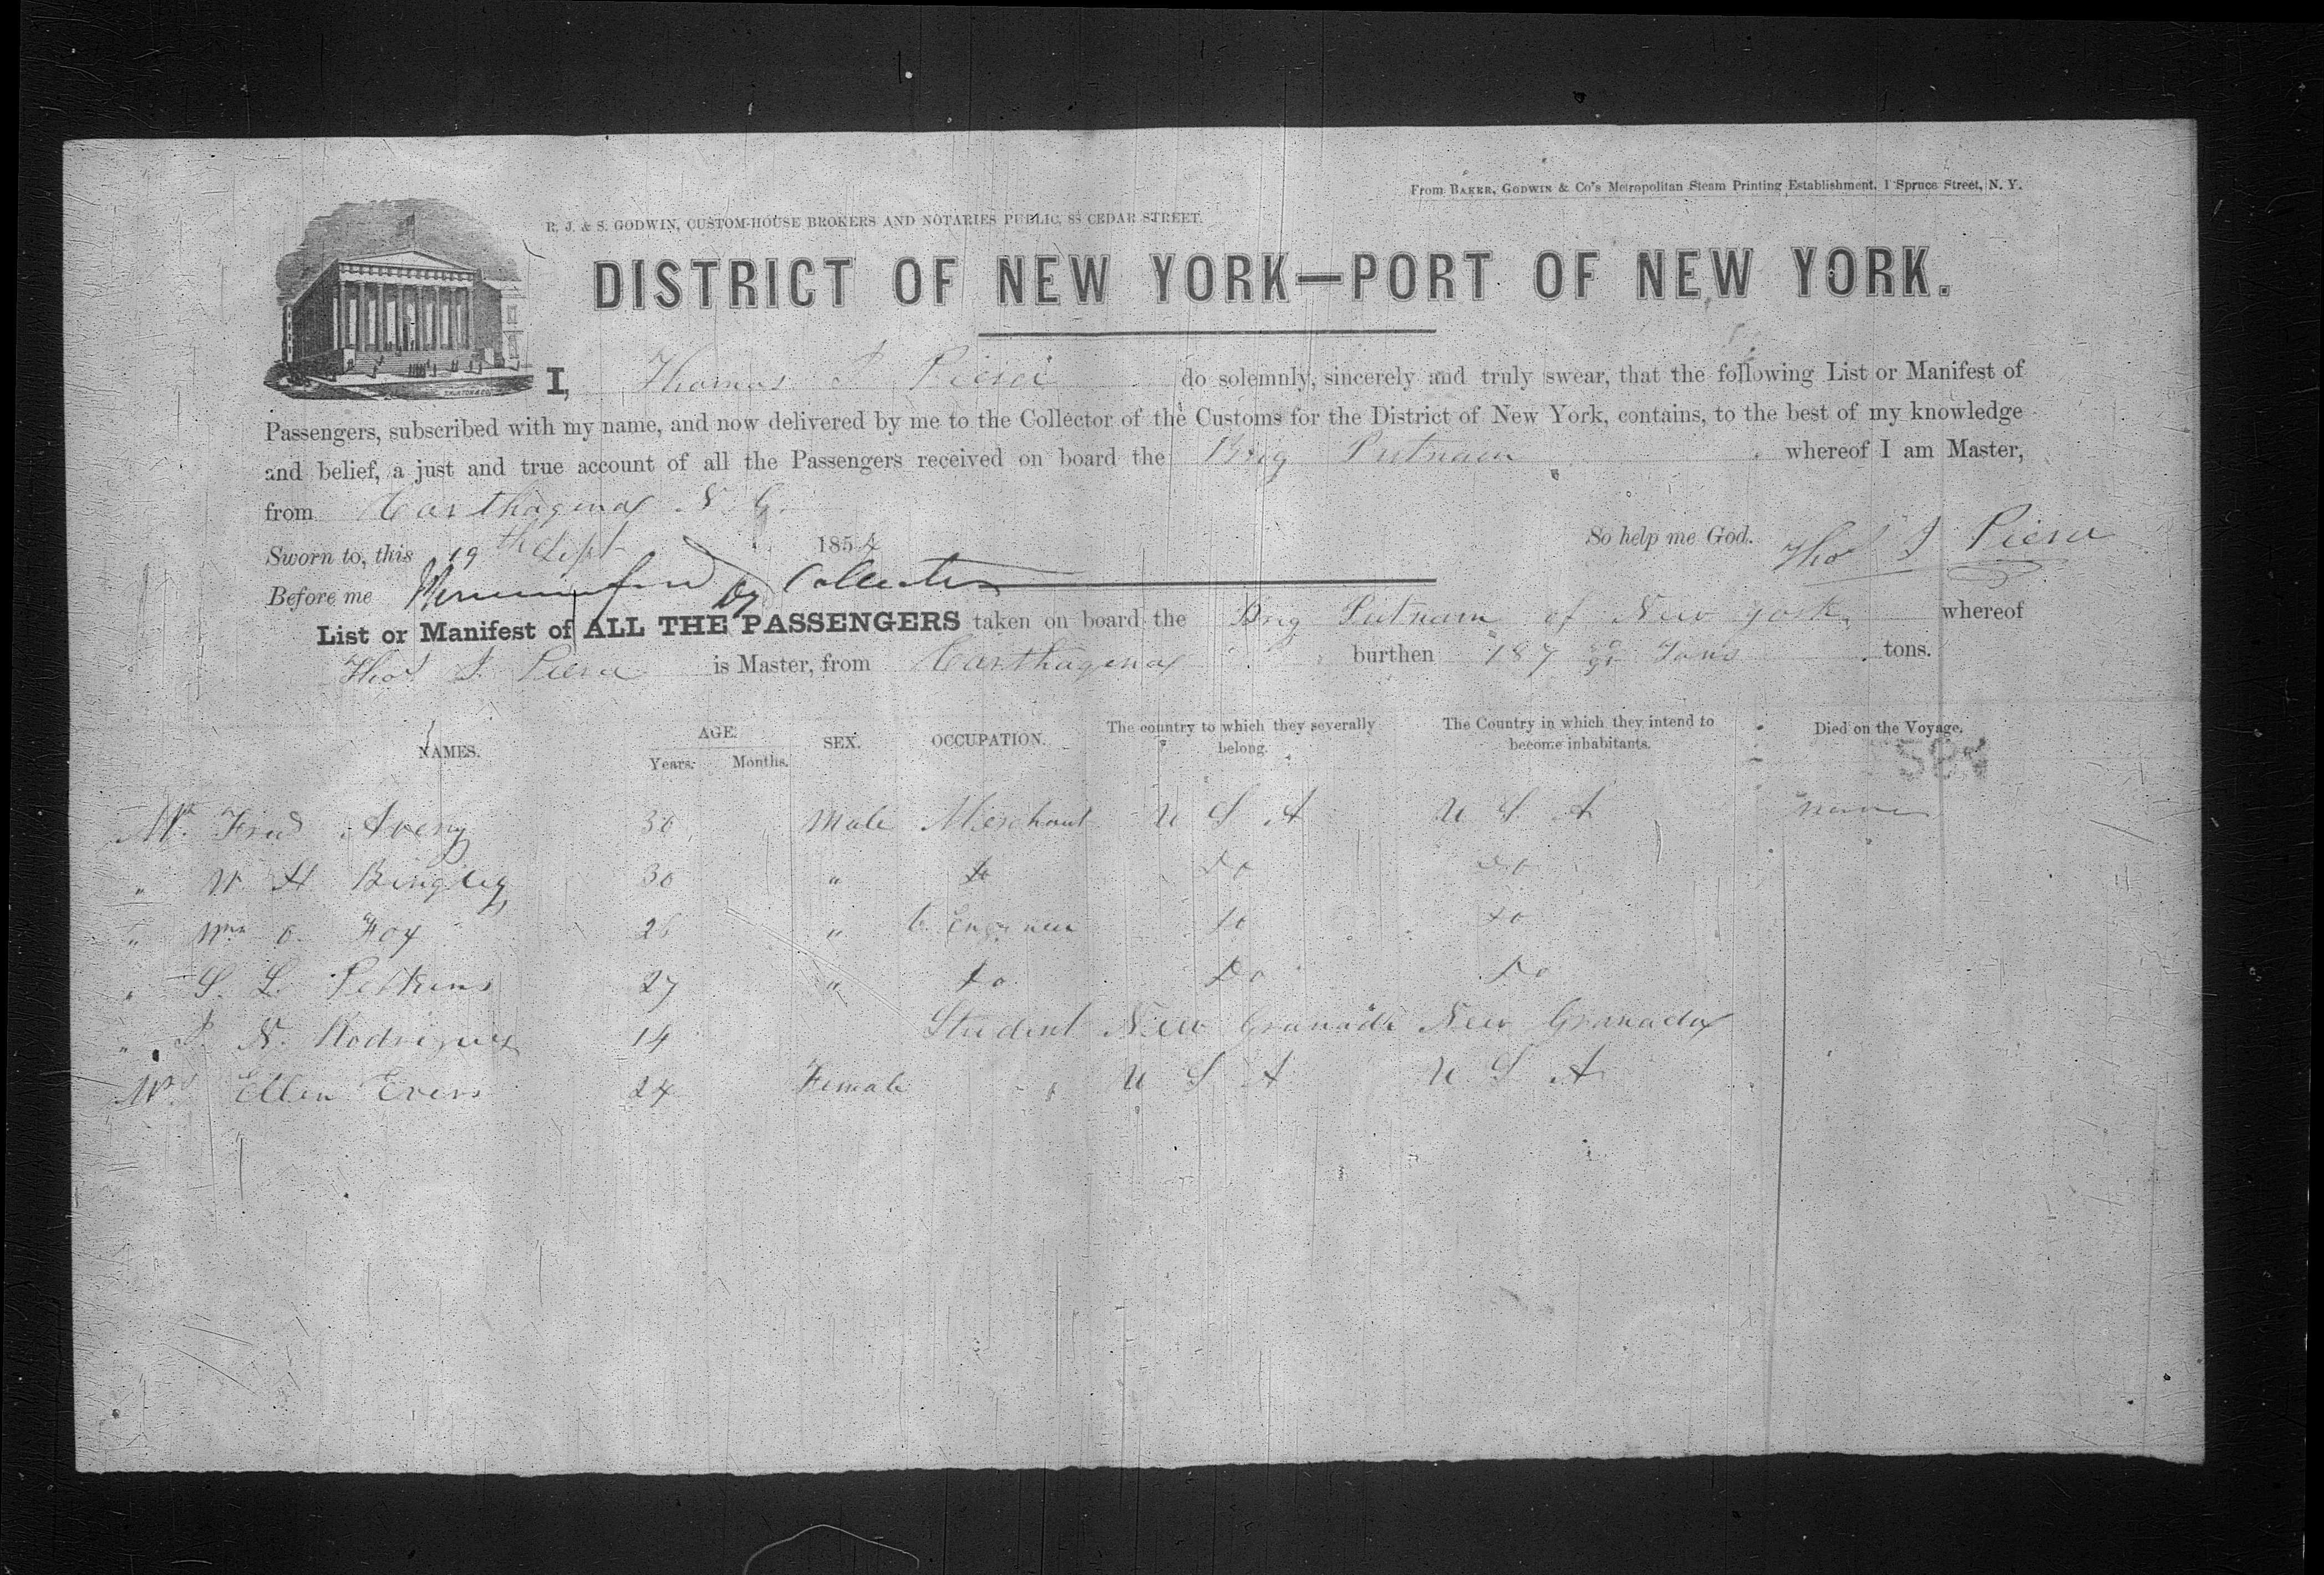 From BAKER, GODWIN & Co's Metropolitan Steam Printing Establishment, 1 Spruce Street, N. Y.
R. J. & S. GODWIN, CUSTOM-HOUSE BROKERS AND NOTARIES PUBLIC, 88 CEDAR STREET.
DISTRICT OF NEW YORK—PORT OF NEW YORK.
I, Thomas J Pierce do solemnly, sincerely and truly swear, that the following List or Manifest of
Passengers, subscribed with my name, and now delivered by me to the Collector of the Customs for the District of New York, contains, to the best of my knowledge
and belief, a just and true account of all the Passengers received on board the Brig Putnam whereof I am Master,
from Carthagena N. G.
Sworn to, this 19th Sept 1854 So help me God. Thos J Pierce
Before me Dy Collector
List or Manifest of ALL THE PASSENGERS taken on board the Brig Putnam of New York whereof
Thos J. Pierce is Master, from Carthagena burthen 187 Tons tons.
NAMES. AGE. Years. Months. SEX. OCCUPATION. The country to which they severally belong. The Country in which they intend to become inhabitants. Died on the Voyage.
Mr. Fred Avery 36 Male Merchant U S A U S A none
" W H Bingley 30 " Do Do Do
" Wm O. Foy 26 " C. Engineer Do Do
" S. L. Perkins 27 " Do Do Do
" J. N. Rodriguez 14 Student New Granada New Granada
Mrs Ellen Evers 24 Female " U S A U. S A